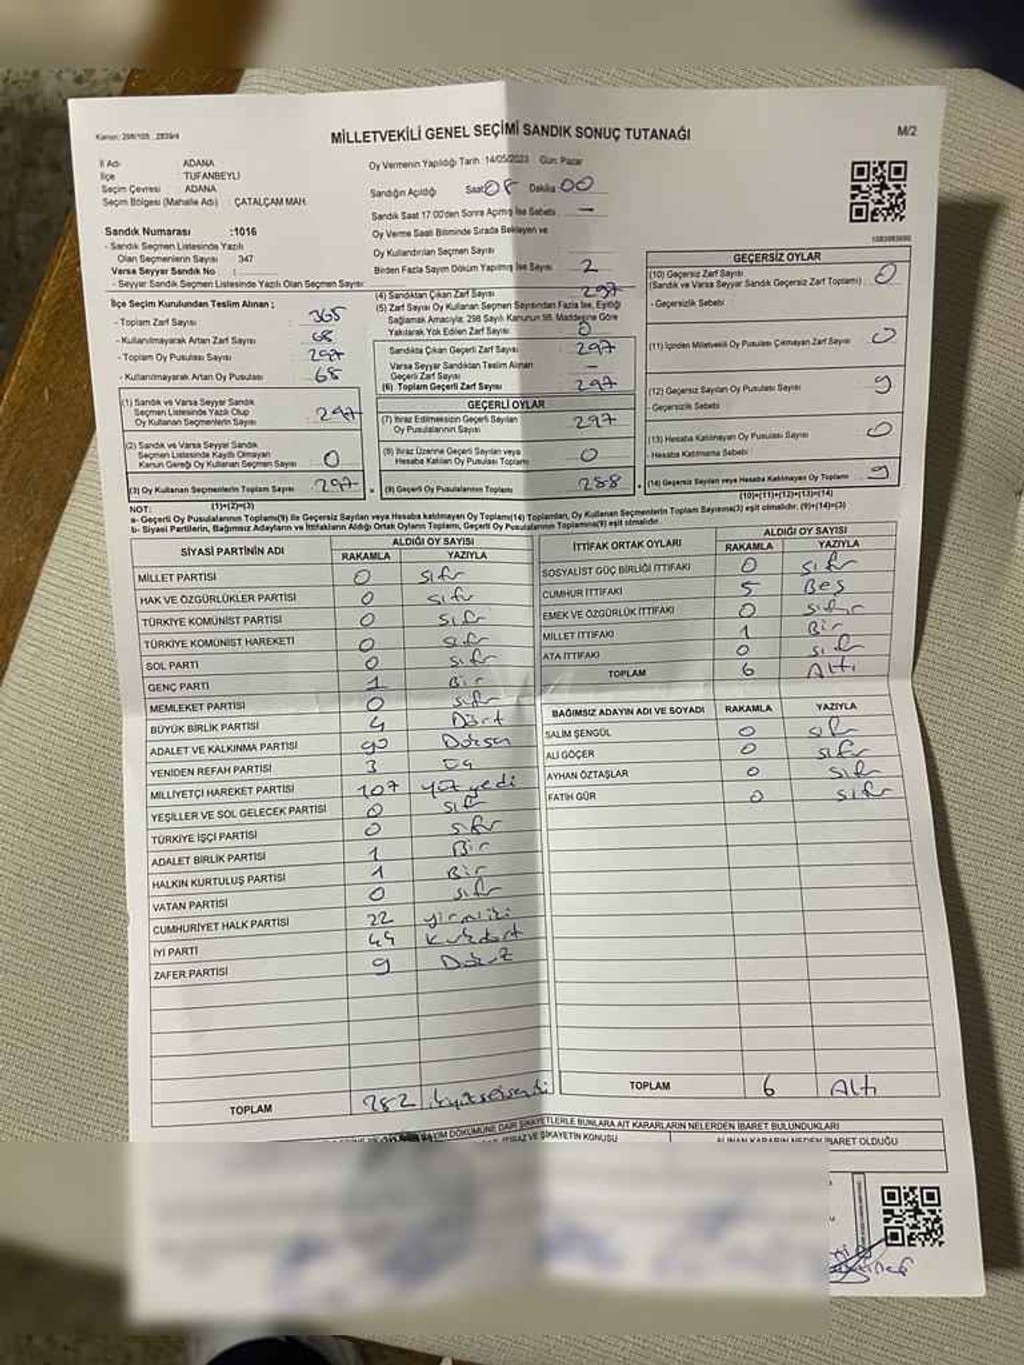 Kanun: 298/105 , 2839/4
MİLLETVEKİLİ GENEL SEÇİMİ SANDIK SONUÇ TUTANAĞI
M/2
İl Adı ADANA
İlçe TUFANBEYLİ
Seçim Çevresi ADANA
Seçim Bölgesi (Mahalle Adı) : ÇATALÇAM MAH.
Sandık Numarası :1016
- Sandık Seçmen Listesinde Yazılı
Olan Seçmenlerin Sayısı 347
Varsa Seyyar Sandık No :
- Seyyar Sandık Seçmen Listesinde Yazılı Olan Seçmen Sayısı
Oy Vermenin Yapıldığı Tarih :14/05/2023 Gün: Pazar
Sandığın Açıldığı Saat 08 Dakika 00
Sandık Saat 17:00'den Sonra Açılmış İse Sebebi : -
Oy Verme Saati Bitiminde Sırada Bekleyen ve
Oy Kullandırılan Seçmen Sayısı
Birden Fazla Sayım Döküm Yapılmış İse Sayısı : 2
İlçe Seçim Kurulundan Teslim Alınan :
- Toplam Zarf Sayısı : 365
- Kullanılmayarak Artan Zarf Sayısı : 68
- Toplam Oy Pusulası Sayısı : 297
- Kullanılmayarak Artan Oy Pusulası : 68
(1) Sandık ve Varsa Seyyar Sandık
Seçmen Listesinde Yazılı Olup
Oy Kullanan Seçmenlerin Sayısı 297
(2) Sandık ve Varsa Seyyar Sandık
Seçmen Listesinde Kayıtlı Olmayan
Kanun Gereği Oy Kullanan Seçmen Sayısı 0
(3) Oy Kullanan Seçmenlerin Toplam Sayısı 297
(1)+(2)=(3)
(4) Sandıktan Çıkan Zarf Sayısı 297
(5) Zarf Sayısı Oy Kullanan Seçmen Sayısından Fazla İse, Eşitliği
Sağlamak Amacıyla; 298 Sayılı Kanunun 98. Maddesine Göre
Yakılarak Yok Edilen Zarf Sayısı 0
Sandıkta Çıkan Geçerli Zarf Sayısı 297
Varsa Seyyar Sandıktan Teslim Alınan
Geçerli Zarf Sayısı -
(6) Toplam Geçerli Zarf Sayısı 297
GEÇERLİ OYLAR
(7) İtiraz Edilmeksizin Geçerli Sayılan
Oy Pusulalarının Sayısı 297
(8) İtiraz Üzerine Geçerli Sayılan veya
Hesaba Katılan Oy Pusulası Toplamı 0
= (9) Geçerli Oy Pusulalarının Toplamı 288
GEÇERSİZ OYLAR
(10) Geçersiz Zarf Sayısı 0
(Sandık ve Varsa Seyyar Sandık Geçersiz Zarf Toplamı)
- Geçersizlik Sebebi :
(11) İçinden Milletvekili Oy Pusulası Çıkmayan Zarf Sayısı 0
(12) Geçersiz Sayılan Oy Pusulası Sayısı 9
- Geçersizlik Sebebi
(13) Hesaba Katılmayan Oy Pusulası Sayısı 0
- Hesaba Katılmama Sebebi
+ (14) Geçersiz Sayılan veya Hesaba Katılmayan Oy Toplamı 9
(10)+(11)+(12)+(13)=(14)
NOT:
a- Geçerli Oy Pusulalarının Toplamı(9) ile Geçersiz Sayılan veya Hesaba katılmayan Oy Toplamı(14) Toplamları, Oy Kullanan Seçmenlerin Toplam Sayısına(3) eşit olmalıdır. (9)+(14)=(3)
b- Siyasi Partilerin, Bağımsız Adayların ve İttifakların Aldığı Ortak Oyların Toplamı, Geçerli Oy Pusulalarının Toplamına(9) eşit olmalıdır.
SİYASİ PARTİNİN ADI ALDIĞI OY SAYISI
RAKAMLA YAZIYLA
MİLLET PARTİSİ 0 sıfır
HAK VE ÖZGÜRLÜKLER PARTİSİ 0 sıfır
TÜRKİYE KOMÜNİST PARTİSİ 0 sıfır
TÜRKİYE KOMÜNİST HAREKETİ 0 sıfır
SOL PARTİ 0 sıfır
GENÇ PARTİ 1 Bir
MEMLEKET PARTİSİ 0 sıfır
BÜYÜK BİRLİK PARTİSİ 4 Dört
ADALET VE KALKINMA PARTİSİ 90 Doksan
YENİDEN REFAH PARTİSİ 3 Üç
MİLLİYETÇİ HAREKET PARTİSİ 107 yüz yedi
YEŞİLLER VE SOL GELECEK PARTİSİ 0 sıfır
TÜRKİYE İŞÇİ PARTİSİ 0 sıfır
ADALET BİRLİK PARTİSİ 1 Bir
HALKIN KURTULUŞ PARTİSİ 1 Bir
VATAN PARTİSİ 0 sıfır
CUMHURİYET HALK PARTİSİ 22 yirmiiki
İYİ PARTİ 44 Kırkdört
ZAFER PARTİSİ 9 Dokuz
TOPLAM 282
İTTİFAK ORTAK OYLARI ALDIĞI OY SAYISI
RAKAMLA YAZIYLA
SOSYALİST GÜÇ BİRLİĞİ İTTİFAKI 0 sıfır
CUMHUR İTTİFAKI 5 Beş
EMEK VE ÖZGÜRLÜK İTTİFAKI 0 sıfır
MİLLET İTTİFAKI 1 Bir
ATA İTTİFAKI 0 sıfır
TOPLAM 6 Altı
BAĞIMSIZ ADAYIN ADI VE SOYADI RAKAMLA YAZIYLA
SALİM ŞENGÜL 0 sıfır
ALİ GÖÇER 0 sıfır
AYHAN ÖZTAŞLAR 0 sıfır
FATİH GÜR 0 sıfır
TOPLAM 6 Altı
SAYIM DÖKÜMÜNE DAİR ŞİKAYETLERLE BUNLARA AİT KARARLARIN NELERDEN İBARET BULUNDUKLARI
İTİRAZ VE ŞİKAYETİN KONUSU
ALINAN KARARIN NEDEN İBARET OLDUĞU